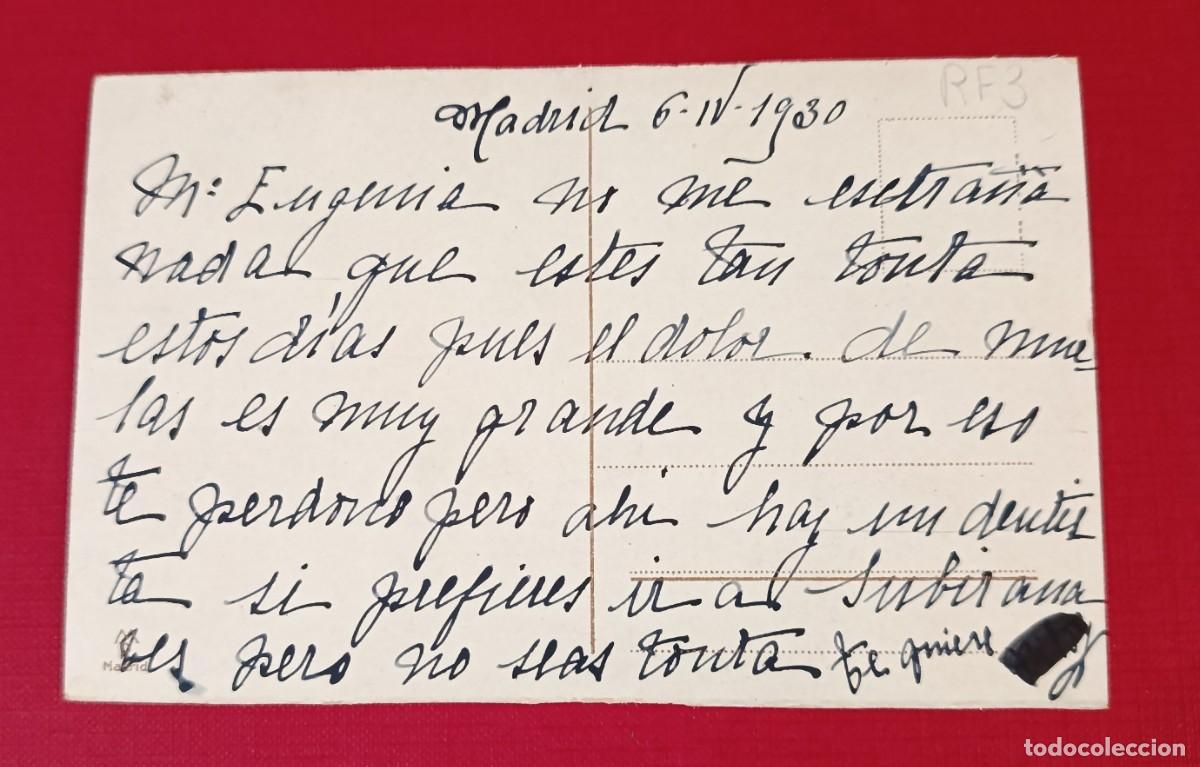 RF3
Madrid 6-IV-1930
Mª Eugenia no me esetraña
nada que estes tan tonta
estos días pues el dolor de mue
las es muy grande y por eso
te perdono pero ahi hay un dentis
ta si prefieres ir a Subirana
ves pero no seas tonta te quiere
Madrid
todocoleccion